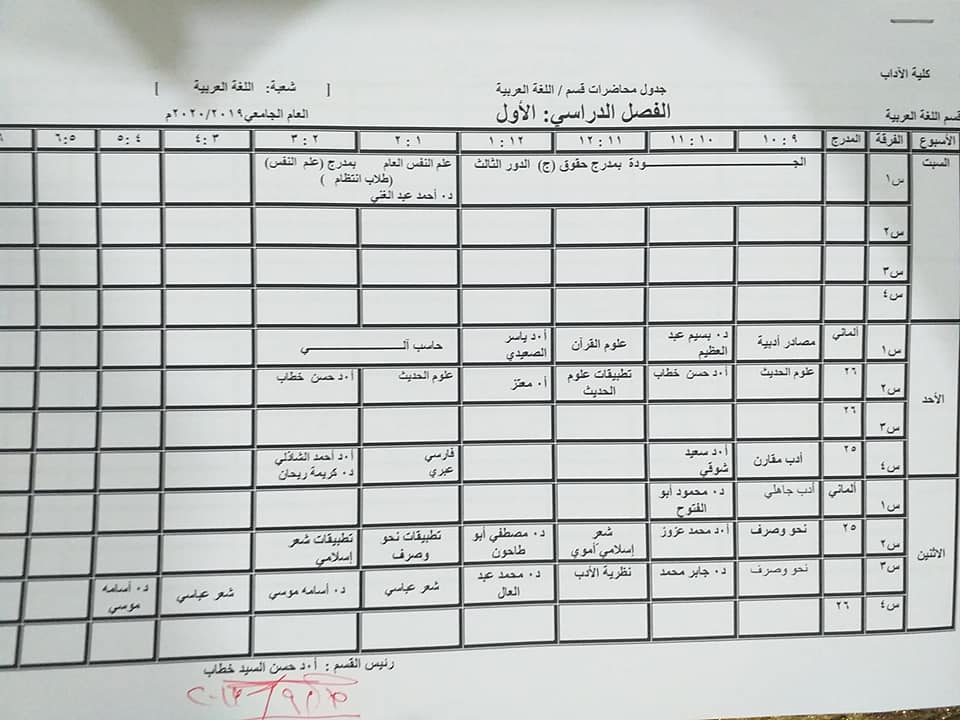 كلية الآداب
قسم اللغة العربية
جدول محاضرات قسم / اللغة العربية
الفصل الدراسي: الأول
[ شعبة: اللغة العربية ]
العام الجامعي ٢٠٢٠/٢٠١٩م
الأسبوع الفرقة المدرج ٩ : ١٠ ١٠ : ١١ ١١ : ١٢ ١٢ : ١ ١ : ٢ ٢ : ٣ ٣ : ٤ ٤ : ٥ ٥ : ٦
السبت
س١ الجـــــــودة بمدرج حقوق (ج) الدور الثالث
علم النفس العام بمدرج (علم النفس)
(طلاب انتظام )
د٠ أحمد عبد الغني
س٢
س٣
س٤
الأحد
س١ ألماني مصادر أدبية د٠ بسيم عبد العظيم علوم القرآن أ٠د ياسر الصعيدي حاسب آلـــــــــي
س٢ ٢٦ علوم الحديث أ٠د حسن خطاب تطبيقات علوم الحديث أ٠ معتز علوم الحديث أ٠د حسن خطاب
س٣ ٢٦
س٤ ٢٥ أدب مقارن أ٠د سعيد شوقي فارسي عبري أ٠د أحمد الشاذلي د٠ كريمة ريحان
الاثنين
س١ ألماني أدب جاهلي د٠ محمود أبو الفتوح
س٢ ٢٥ نحو وصرف أ٠د محمد عزوز شعر إسلامي أموي د٠ مصطفي أبو طاحون تطبيقات نحو وصرف تطبيقات شعر إسلامي
س٣ نحو وصرف د٠ جابر محمد نظرية الأدب د٠ محمد عبد العال شعر عباسي د٠ أسامه موسي شعر عباسي د٠ أسامه موسي
س٤ ٢٦
رئيس القسم : أ٠د حسن السيد خطاب